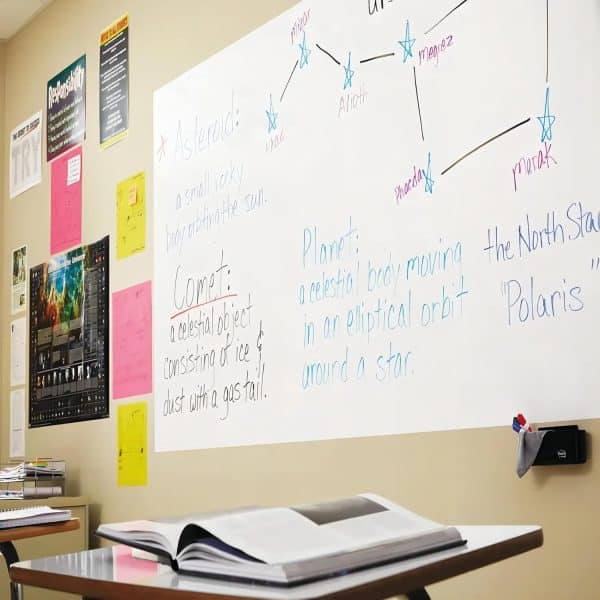 Responsibility
TRY
Ur
Mizar
Alioth
megrez
phecda
merak
Asteroid:
a small rocky
body orbiting the sun.
Comet:
a celestial object
consisting of ice &
dust with a gas tail.
Planet:
a celestial body moving
in an elliptical orbit
around a star.
the North Star
"Polaris"